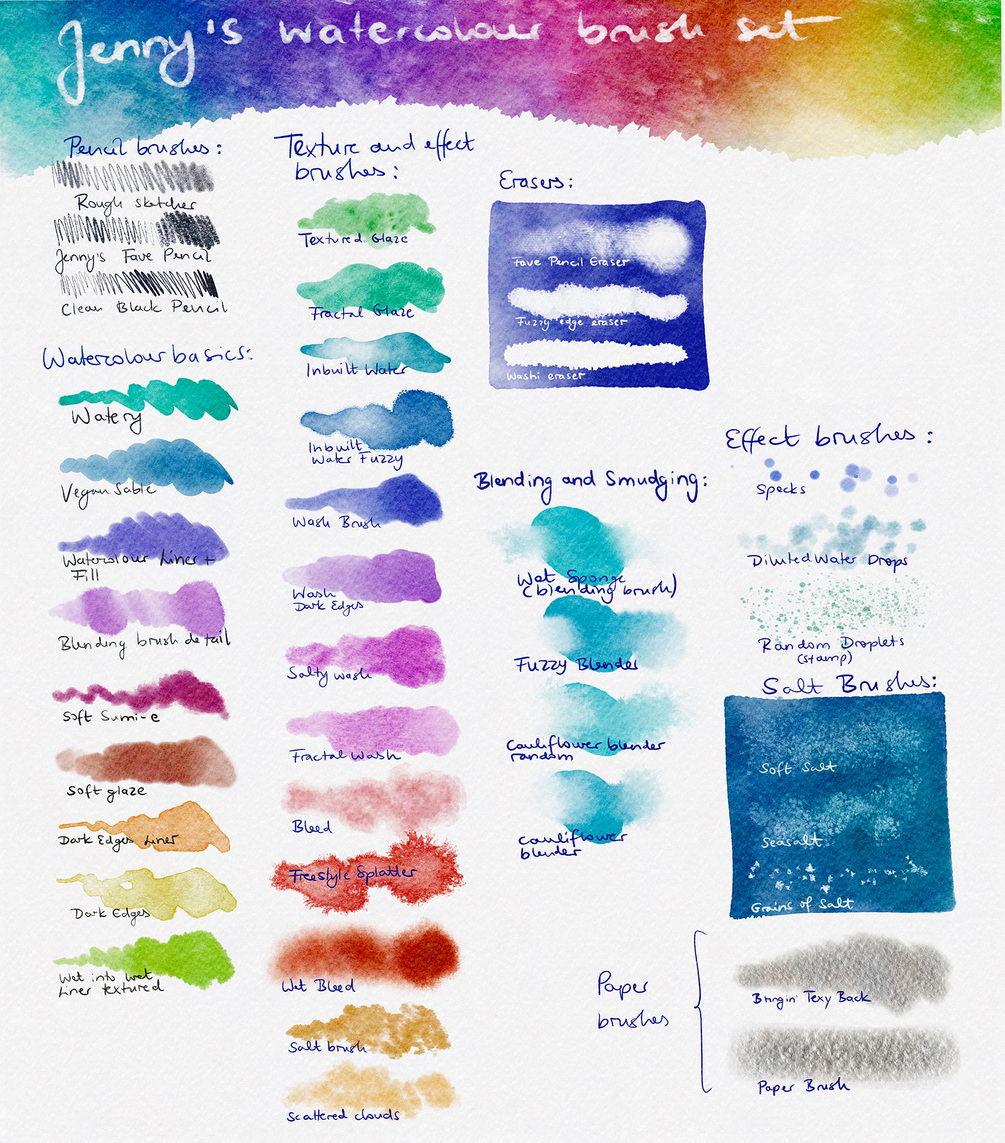 Jenny's watercolour brush set
Pencil brushes:
Rough sketcher
Jenny's Fave Pencil
Clean Black Pencil
Watercolour basics:
Watery
Vegan Sable
Watercolour Liner +
Fill
Blending brush detail
Soft Sumi-e
Soft glaze
Dark Edges Liner
Dark Edges
Wet into wet
Liner textured
Texture and effect
brushes:
Textured Glaze
Fractal Glaze
Inbuilt Water
Inbuilt
Water Fuzzy
Wash Brush
Wash
Dark Edges
Salty wash
Fractal Wash
Bleed
Freestyle Splatter
Wet Bleed
Salt brush
Scattered clouds
Erasers:
Fave Pencil Eraser
Fuzzy edge eraser
Washi eraser
Blending and Smudging:
Wet Sponge
(blending brush)
Fuzzy Blender
Cauliflower blender
random
Cauliflower
blender
Effect brushes:
Specks
Diluted Water Drops
Random Droplets
(stamp)
Salt Brushes:
Soft Salt
Seasalt
Grains of Salt
Paper
brushes
Bringin' Texy Back
Paper Brush